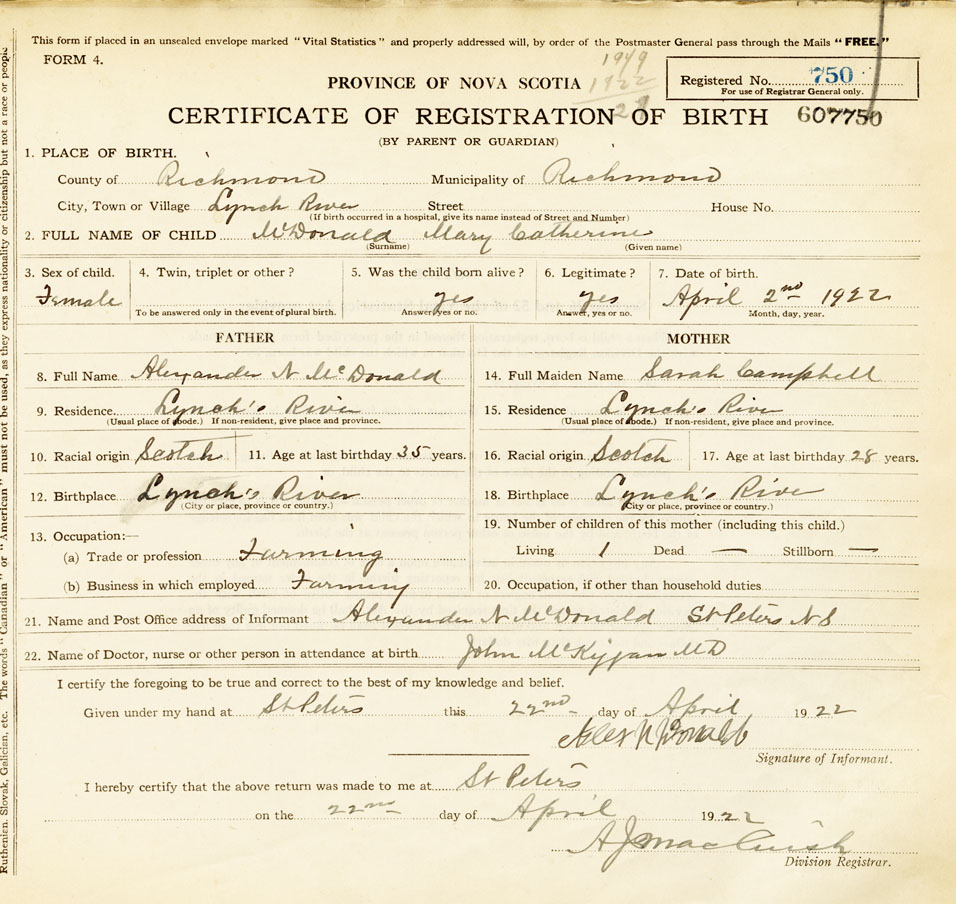 This form if placed in an unsealed envelope marked "Vital Statistics" and properly addressed will, by order of the Postmaster General pass through the Mails "FREE."
FORM 4.
1949
1922
27
PROVINCE OF NOVA SCOTIA
Registered No. 750
For use of Registrar General only.
CERTIFICATE OF REGISTRATION OF BIRTH 607750
(BY PARENT OR GUARDIAN)
1. PLACE OF BIRTH.
County of Richmond Municipality of Richmond
City, Town or Village Lynch River Street House No.
(If birth occurred in a hospital, give its name instead of Street and Number)
2. FULL NAME OF CHILD McDonald Mary Catherine
(Surname) (Given name)
3. Sex of child. 4. Twin, triplet or other? 5. Was the child born alive? 6. Legitimate? 7. Date of birth.
Female yes yes April 2nd 1922
To be answered only in the event of plural birth. Answer, yes or no. Answer, yes or no. Month, day, year.
FATHER
8. Full Name Alexander N McDonald
9. Residence Lynch's River
(Usual place of abode.) If non-resident, give place and province.
10. Racial origin Scotch 11. Age at last birthday 35 years.
12. Birthplace Lynch's River
(City or place, province or country.)
13. Occupation:—
(a) Trade or profession Farming
(b) Business in which employed Farming
MOTHER
14. Full Maiden Name Sarah Campbell
15. Residence Lynch's River
(Usual place of abode.) If non-resident, give place and province.
16. Racial origin Scotch 17. Age at last birthday 28 years.
18. Birthplace Lynch's River
(City or place, province or country.)
19. Number of children of this mother (including this child.)
Living 1 Dead — Stillborn —
20. Occupation, if other than household duties
21. Name and Post Office address of Informant Alexander N McDonald St Peters N S
22. Name of Doctor, nurse or other person in attendance at birth John McKiggan MD
I certify the foregoing to be true and correct to the best of my knowledge and belief.
Given under my hand at St Peters this 22nd day of April 1922
Alex N McDonald
Signature of Informant.
I hereby certify that the above return was made to me at St Peters
on the 22nd day of April 1922
A J MacCuish
Division Registrar.
Ruthenian, Slovak, Galician, etc. The words "Canadian" or "American" must not be used, as they express nationality or citizenship but not a race or people